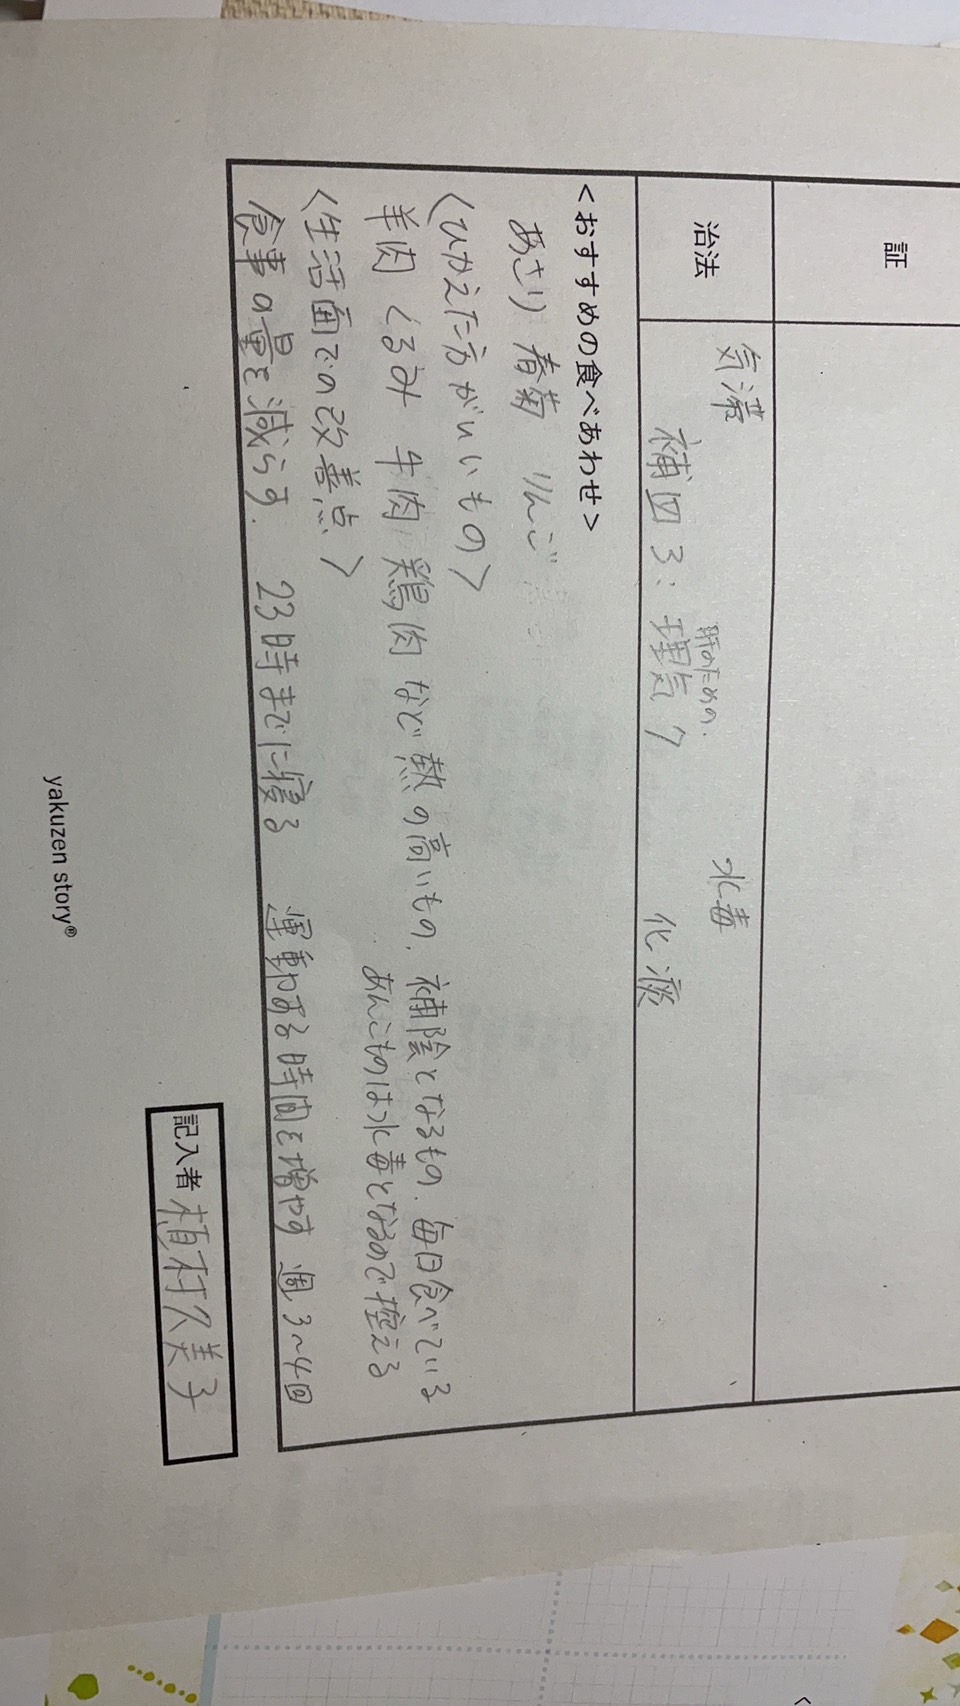 証
気滞 水毒
治法
肝のための
補血 3: 理気 7 化痰
<おすすめの食べあわせ>
あさり 春菊 りんご
<ひかえた方がいいもの>
羊肉 くるみ 牛肉 鶏肉 など 熱の高いもの. 補陰となるもの. 毎日食べている
あんこものは水毒となるので控える
<生活面での改善点>
食事の量を減らす. 23時までに寝る 運動する時間を増やす 週3~4回
記入者 植村久美子
yakuzen story®